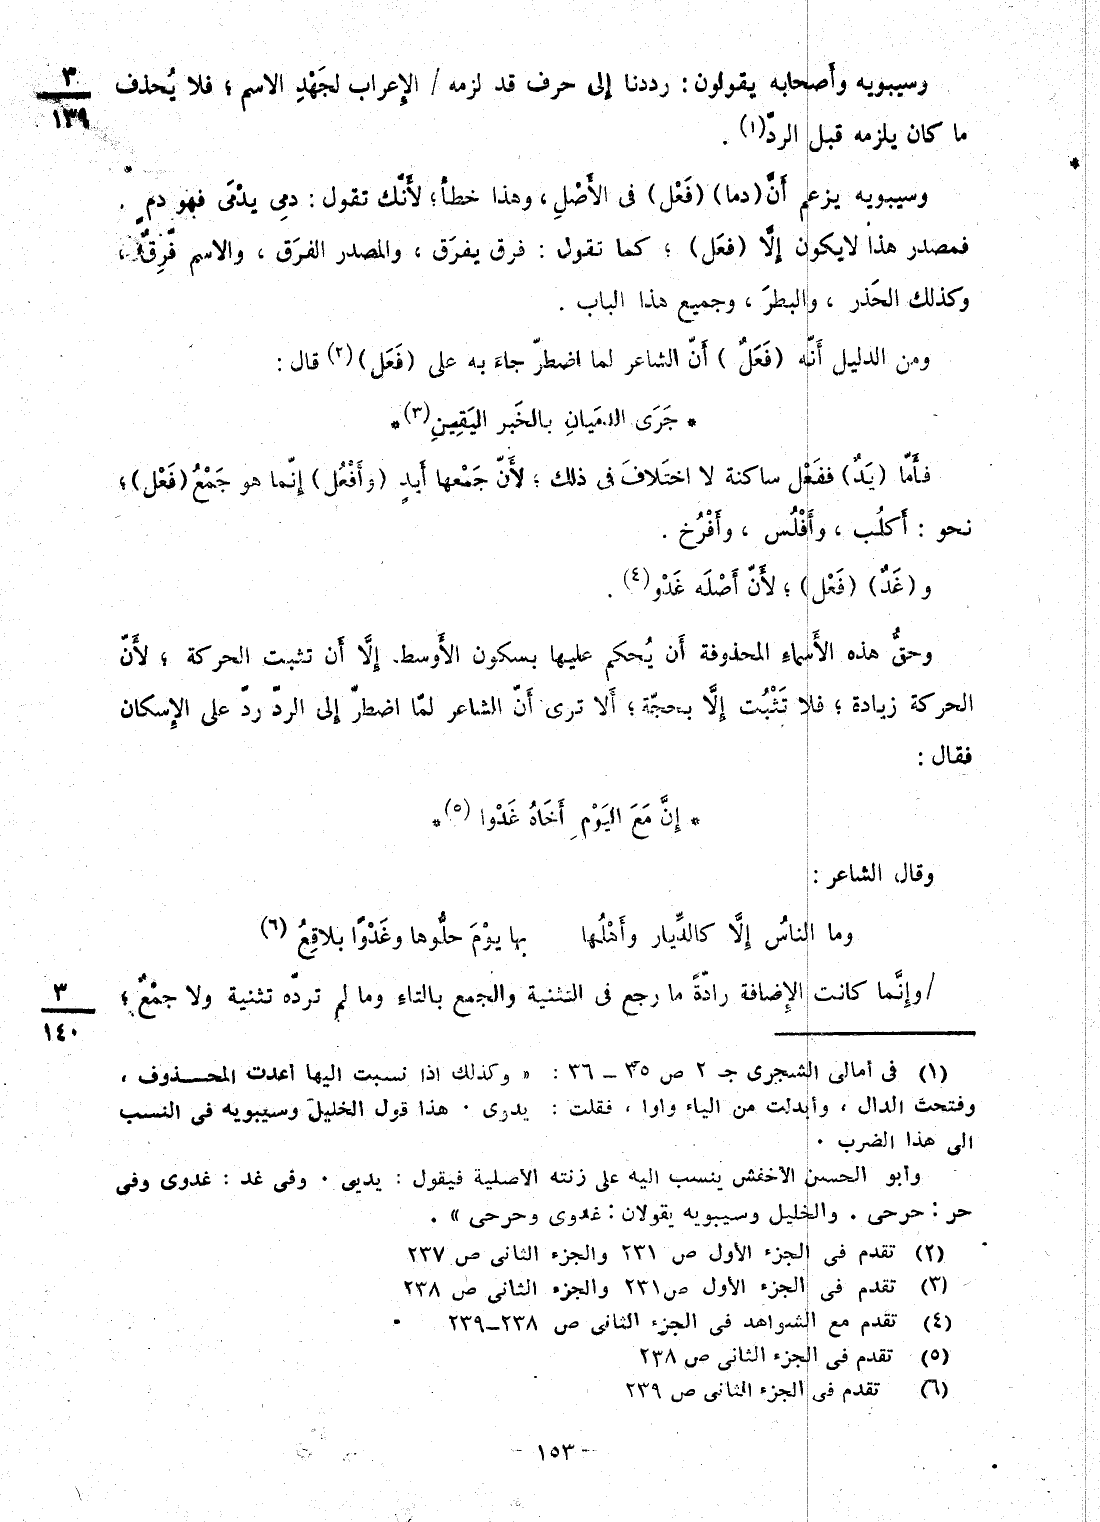 وسيبويه وأَصحابه يقولون : رددنا إلى حرف قد لزمه / الإِعراب لجَهْدِ الاسم ؛ فلا يُحذف
٣
١٣٩
ما كان يلزمه قبل الردّ(١) .
وسيبويه يزعم أَنَّ (دما) (فَعْل) فى الأَصْلِ ، وهذا خطأ ؛ لأَنَّك تقول : دمِى يدْمَى فهو دمٍ .
فمصدر هذا لايكون إِلَّا (فعَل) ؛ كما تقول : فرق يفرَق ، والمصدر الفرَق ، والاسم فَرِقٌ ،
وكذلك الحَذر ، والبطرَ ، وجميع هذا الباب .
ومن الدليل أَنَّه (فَعَلٌ) أَنّ الشاعر لما اضطرّ جاءَ به على (فَعَل)(٢) قال :
* جَرَى الدمَيانِ بالخَبر اليَقِينِ(٣) *
فأَمّا (يَدٌ) ففَعْل ساكنة لا اختَلافَ فى ذلك ؛ لأَنّ جَمْعها أَيدٍ (وأَفْعُل) إِنّما هو جَمْعُ (فَعْل) ؛
نحو : أَكلُب ، وأَفْلُس ، وأَفْرُخ .
و (غَدٌ) (فَعْل) ؛ لأَنّ أَصْلَه غَدْو(٤) .
وحقُّ هذه الأَسماءِ المحذوفة أَن يُحكم عليها بسكون الأَوسط. إِلَّا أَن تثبت الحركة ؛ لأَنّ
الحركة زيادة ؛ فلا تَثْبُت إِلَّا بحجّة ؛ أَلا ترى أَنّ الشاعر لمّا اضطرّ إِلى الردّ ردّ على الإِسكان
فقال :
* إِنَّ مَعَ اليَوْمِ أَخَاهُ غَدْوا (٥) *
وقال الشاعر :
وما الناسُ إِلَّا كالدِّيار وأَهْلُها بها يوْمَ حلُّوها وغَدْوًا بلاقِعُ (٦)
/ وإِنَّما كانت الإِضافة رادّةً ما رجع فى التثنية والجمع بالتاءِ وما لم تردّه تثنية ولا جمْعٌ ؛
٣
١٤٠
(١) فى أمالى الشجرى جـ ٢ ص ٣٥ – ٣٦ : « وكذلك اذا نسبت اليها أعدت المحذوف ،
وفتحت الدال ، وأبدلت من الياء واوا ، فقلت : يدوى . هذا قول الخليل وسيبويه فى النسب
الى هذا الضرب .
وأبو الحسن الأخفش ينسب اليه على زنته الأصلية فيقول : يديى . وفى غد : غدوى وفى
حر : حرحى . والخليل وسيبويه يقولان : غدوى وحرحى » .
(٢) تقدم فى الجزء الأول ص ٢٣١ والجزء الثانى ص ٢٣٧
(٣) تقدم فى الجزء الأول ص ٢٣١ والجزء الثانى ص ٢٣٨
(٤) تقدم مع الشواهد فى الجزء الثانى ص ٢٣٨–٢٣٩ .
(٥) تقدم فى الجزء الثانى ص ٢٣٨
(٦) تقدم فى الجزء الثانى ص ٢٣٩
– ١٥٣ –